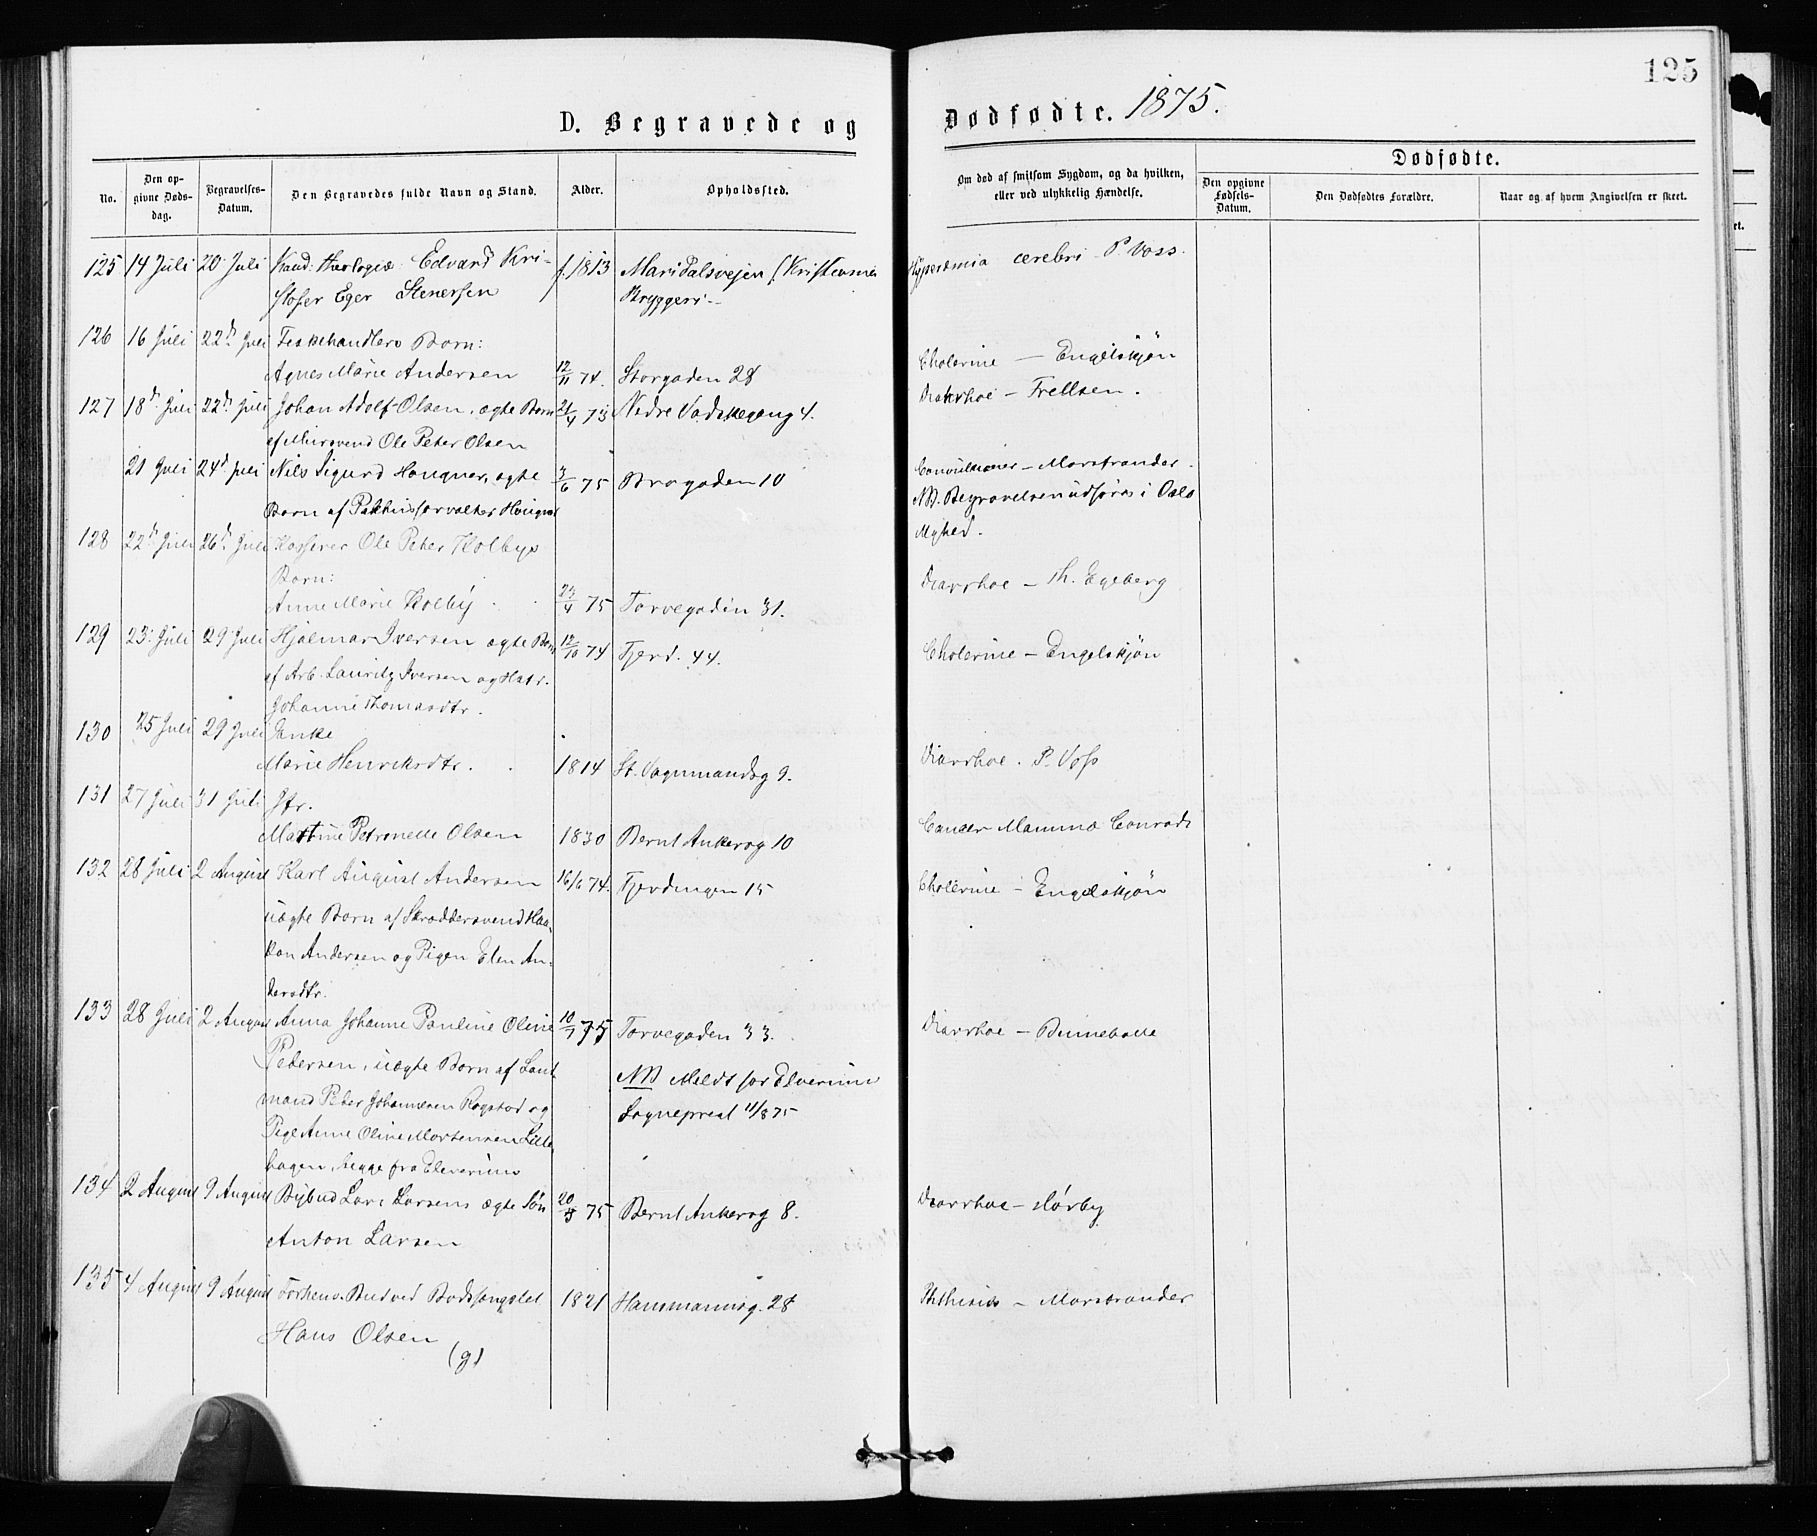 125
D. Begravede og Dødfødte. 1875.
No.
Den opgivne Dødsdag.
Begravelses-Datum.
Den Begravedes fulde Navn og Stand.
Alder.
Opholdssted.
Om død af smitsom Sygdom, og da hvilken, eller ved ulykkelig Hændelse.
Dødfødte.
Den opgivne Fødsels-Datum.
Den Dødfødtes Forældre.
Naar og af hvem Angivelsen er skeet.
125 14 Juli 20 Juli Kand: theologiæ: Edvard Kri- f. 1813 Maridalsvejen (Kristensens Hyperæmia cerebri P. Voss.
stofer Eger Stenersen Bryggeri
126 16 Juli 22d Juli Fiskehandlers Barn:
Agnes Marie Andersen 12/11 74. Storgaden 28 Cholerine — Engelskjøn
127 18d Juli 22d Juli Johan Adolf Olsen, ægte Barn 21/4 73 Nedre Vadskegang 4. Diarrhoe — Frellsen.
af Mursvend Ole Peter Olsen
21 Juli 24d Juli Nils Sigurd Hougner, ægte 3/6 75 Brogaden 10 Convulsioner — Marstrander.
Barn af Pakhusforvalter Hougner NB. Begravelsen udføres i Oslo
Myhed.
128 22d Juli 26d Juli Kasserer Ole Peter Kolbys
Barn:
Anne Marie Kolby 23/4 75 Torvegaden 31. Diarrhoe — Th. Egeberg
129 23: Juli 29 Juli Hjalmar Iversen ægte Barn 12/10 74 Fjerd. 44. Cholerine — Engelskjøn
af Arb. Lauritz Iversen og Hstr.
Johanne Thomasdtr.
130 25 Juli 29 Juli Enke
Marie Henriksdtr. 1814 St. Vognmandsg 9. Diarrhoe. P. Voss
131 27 Juli 31 Juli Jfr.
Martine Petronelle Olsen 1830 Bernt Ankersg 10 Cancer Mammæ Conradi
132 28 Juli 2 August Karl August Andersen 16/6 74. Fjerdingen 15 Cholerine — Engelskjøn
uægte Barn af Skræddersvend Haa-
kon Andersen og Pigen Elen An-
dersdtr.
133 28 Juli 2 August Anna Johanne Pauline Oline 10/7 75 Torvegaden 33. Diarrhoe — Binneballe
Petersen, uægte Barn af Land- NB Meldt for Elverums
mand Peter Johannesen Rogstad og Sogneprest 11/8 75
Pige Anne Oline Mortensen Lille-
hagen, begge fra Elverums
134 2 August 9 August Bybud Lars Larsens ægte Søn 20/5 75 Bernt Ankersg 8. Diarrhoe — Hørby
Anton Larsen
135 4 August 9 August Forhenv. Bud ved Bodsfængslet 1821 Hausmannsg. 28 Phthisis — Marstrander
Hans Olsen
(g)